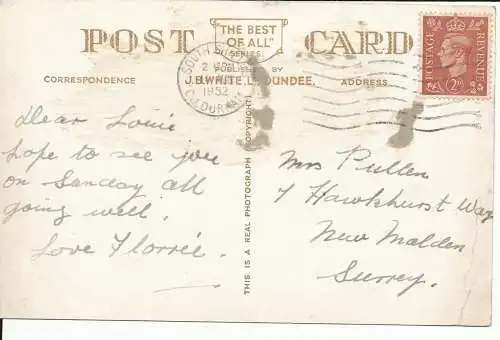 POST CARD
"THE BEST
OF ALL"
SERIES
PUBLISHED BY
J.B.WHITE, LD DUNDEE.
CORRESPONDENCE
ADDRESS
SOUTH
2
1952
CO. DURHAM
POSTAGE
REVENUE
2D
Dear Louie
hope to see you
on Sunday all
going well.
Love Florrie.
THIS IS A REAL PHOTOGRAPH (COPYRIGHT)
Mrs Pullen
7 Hawkhurst Way
New Malden
Surrey.